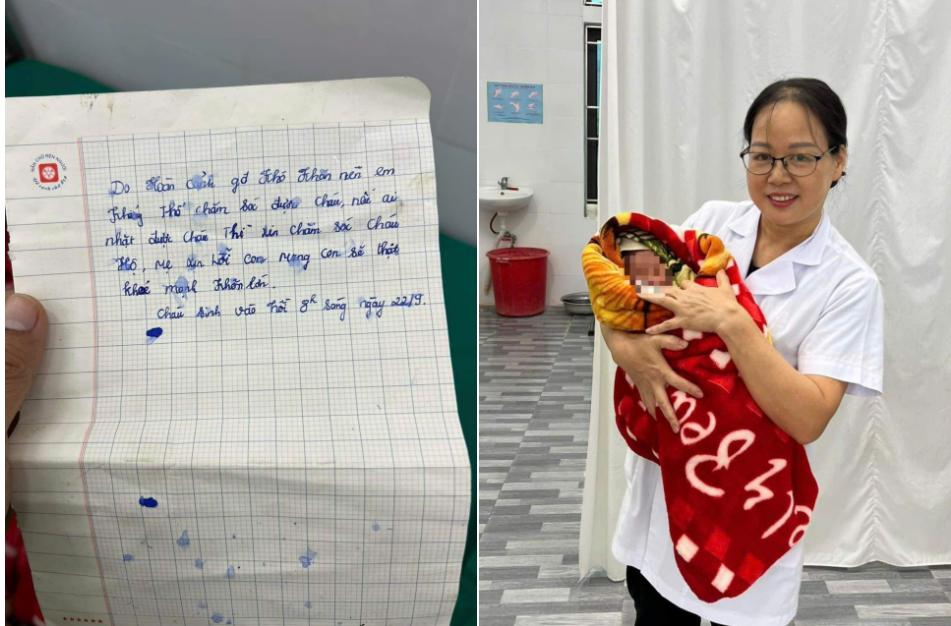 Do Hoàn cảnh gđ Khó Khăn nên em
Không Thể chăm sóc được Cháu, nếu ai
nhặt được Cháu Thì xin Chăm sóc Cháu
Hộ, mẹ xin lỗi con mong con sẽ thật
khoẻ mạnh Khôn lớn.
Cháu sinh vào hồi 8h sáng ngày 22/9.